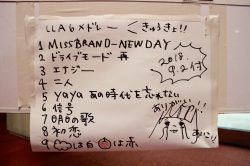 LLA6×ドレー
きゅうきょ!!
1 MISS BRAND-NEW DAY
2 ドライブモード 再
3 エナジー
4 二人
5 YaYa あの時代を忘れない
6 信号
7 明日の歌
8 初恋
9 は白 は赤
2018
9.2付
ありがとう